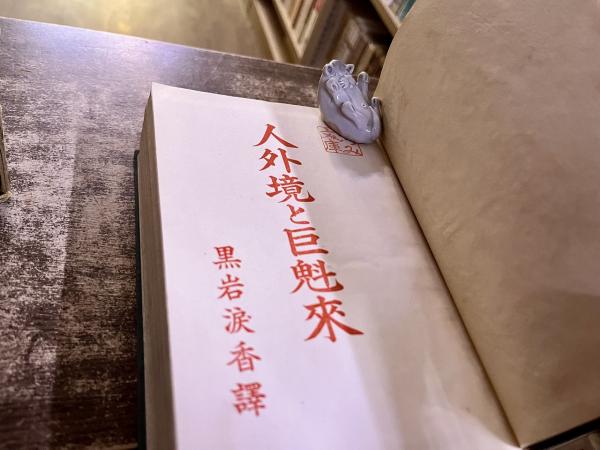 人外境と巨魁來
黒岩涙香譯